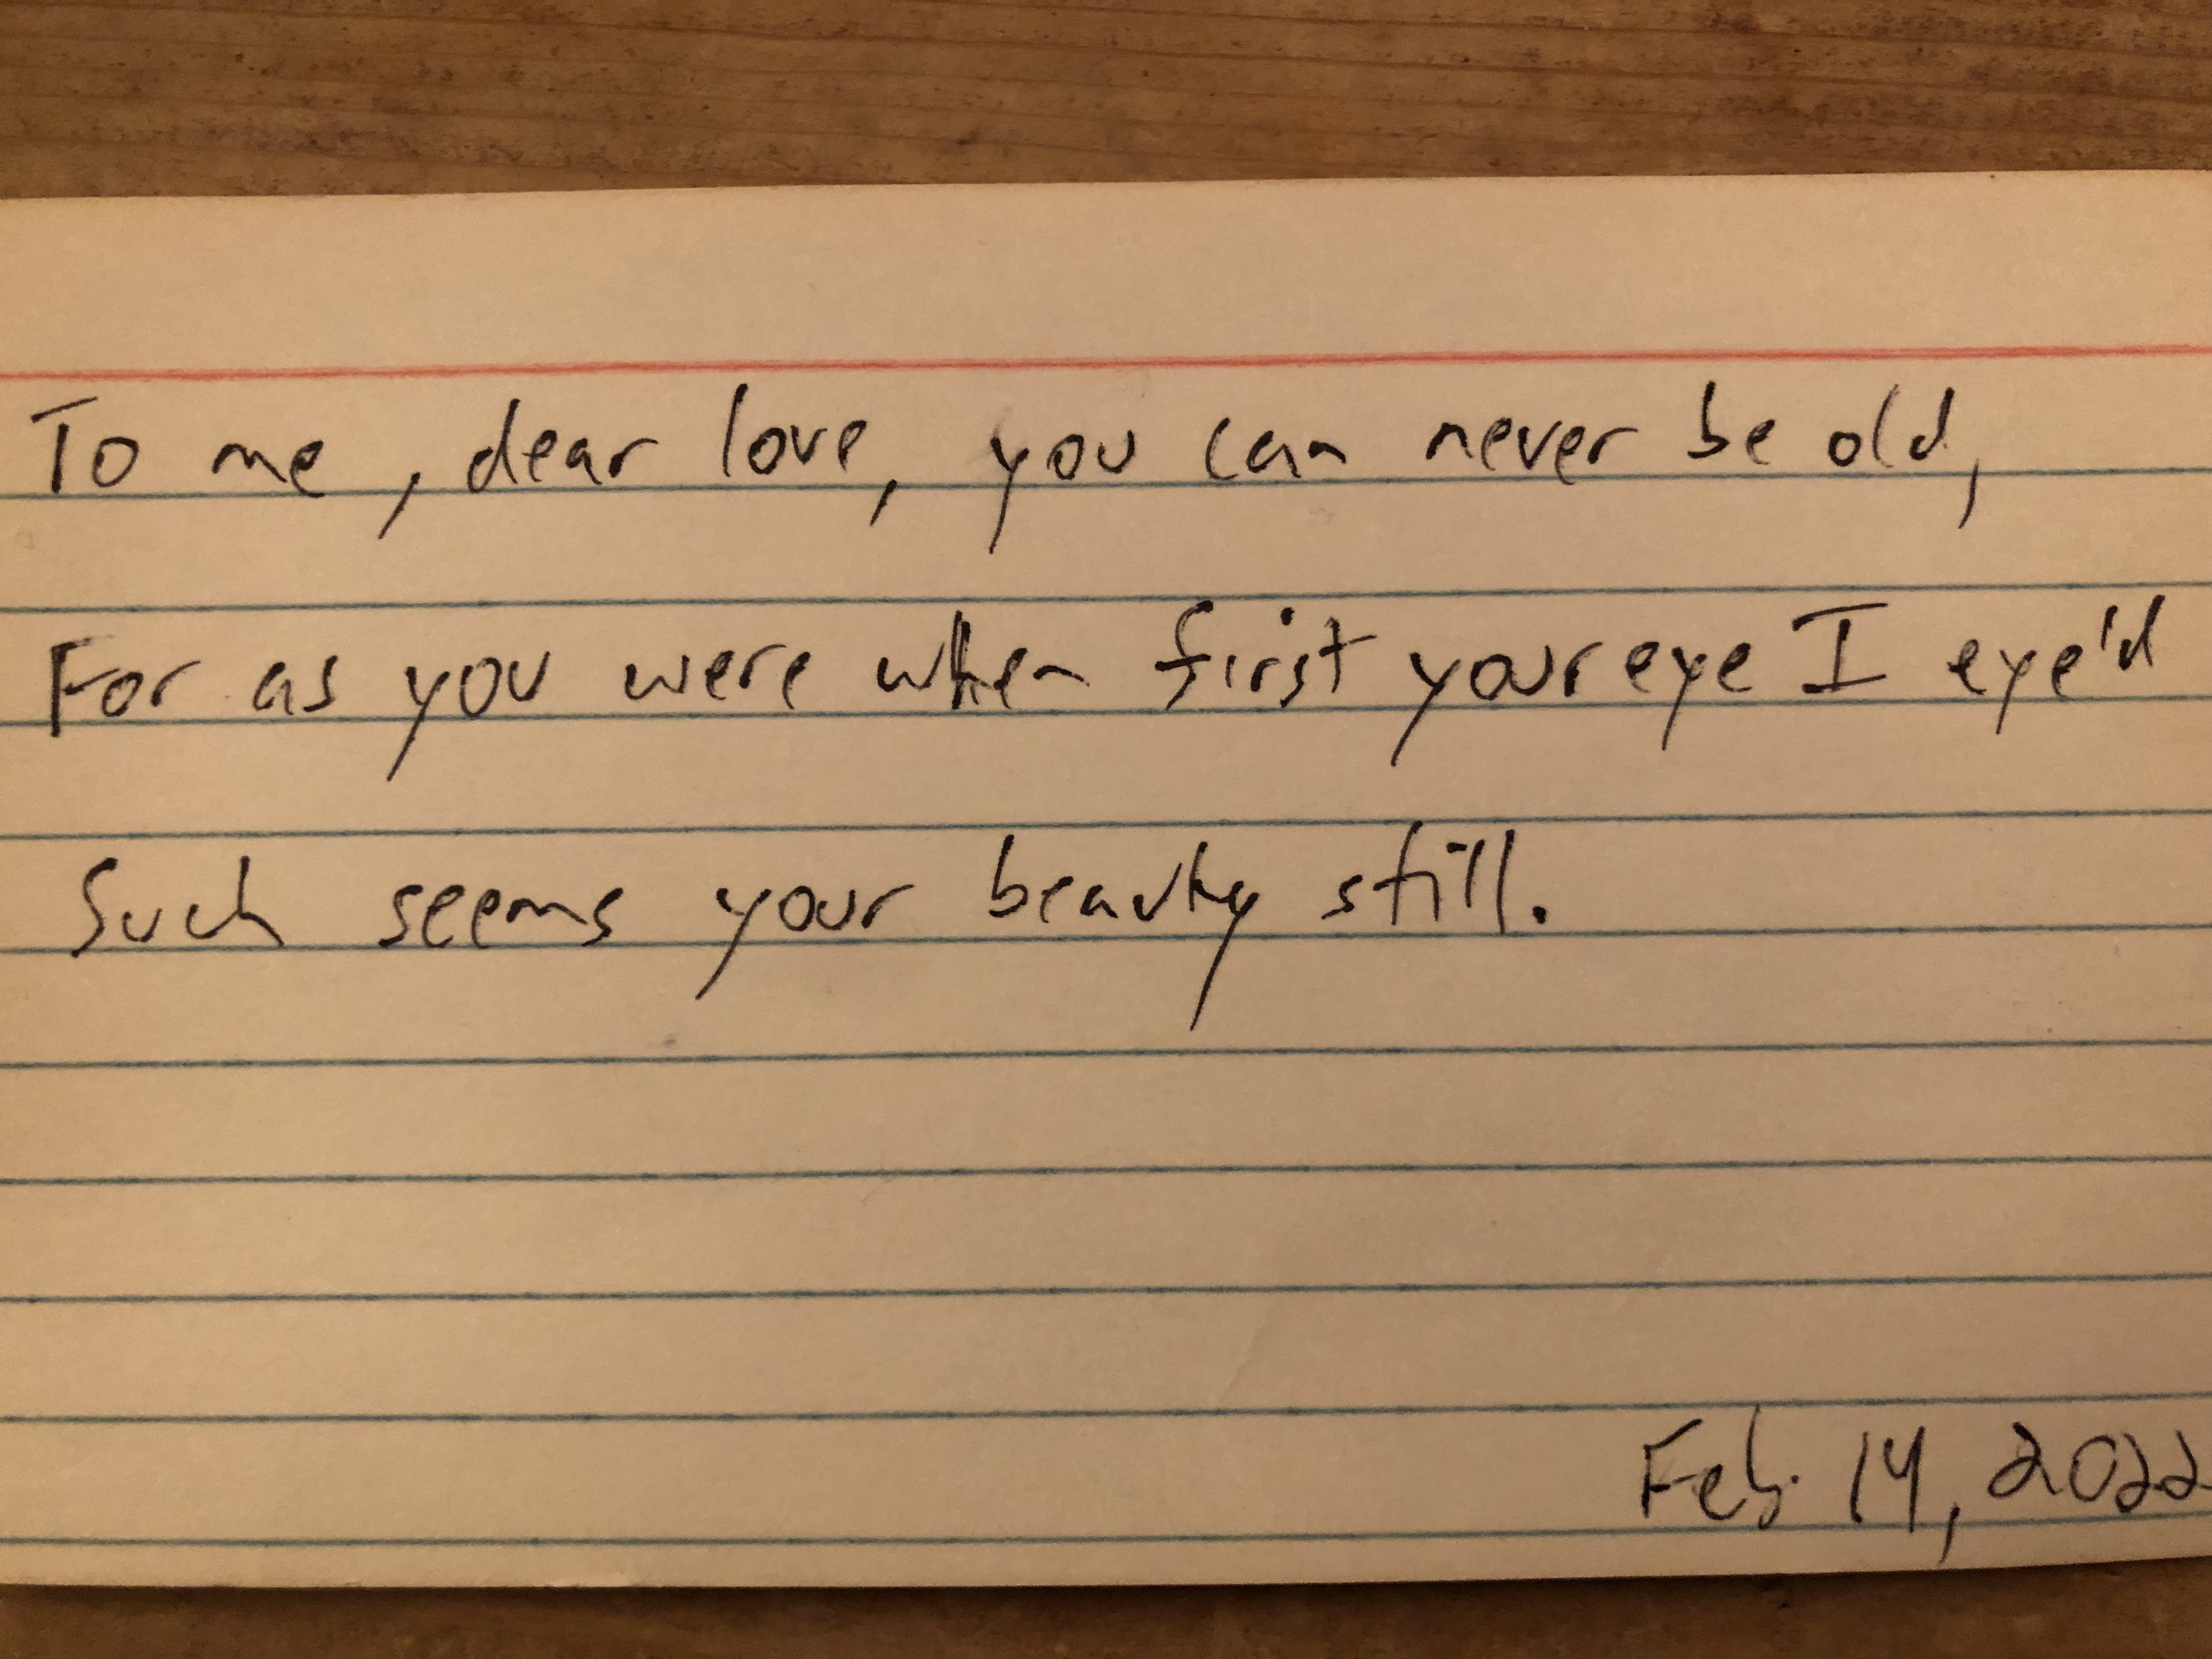 To me, dear love, you can never be old,
For as you were when first your eye I eye'd
Such seems your beauty still.
Feb. 14, 2022